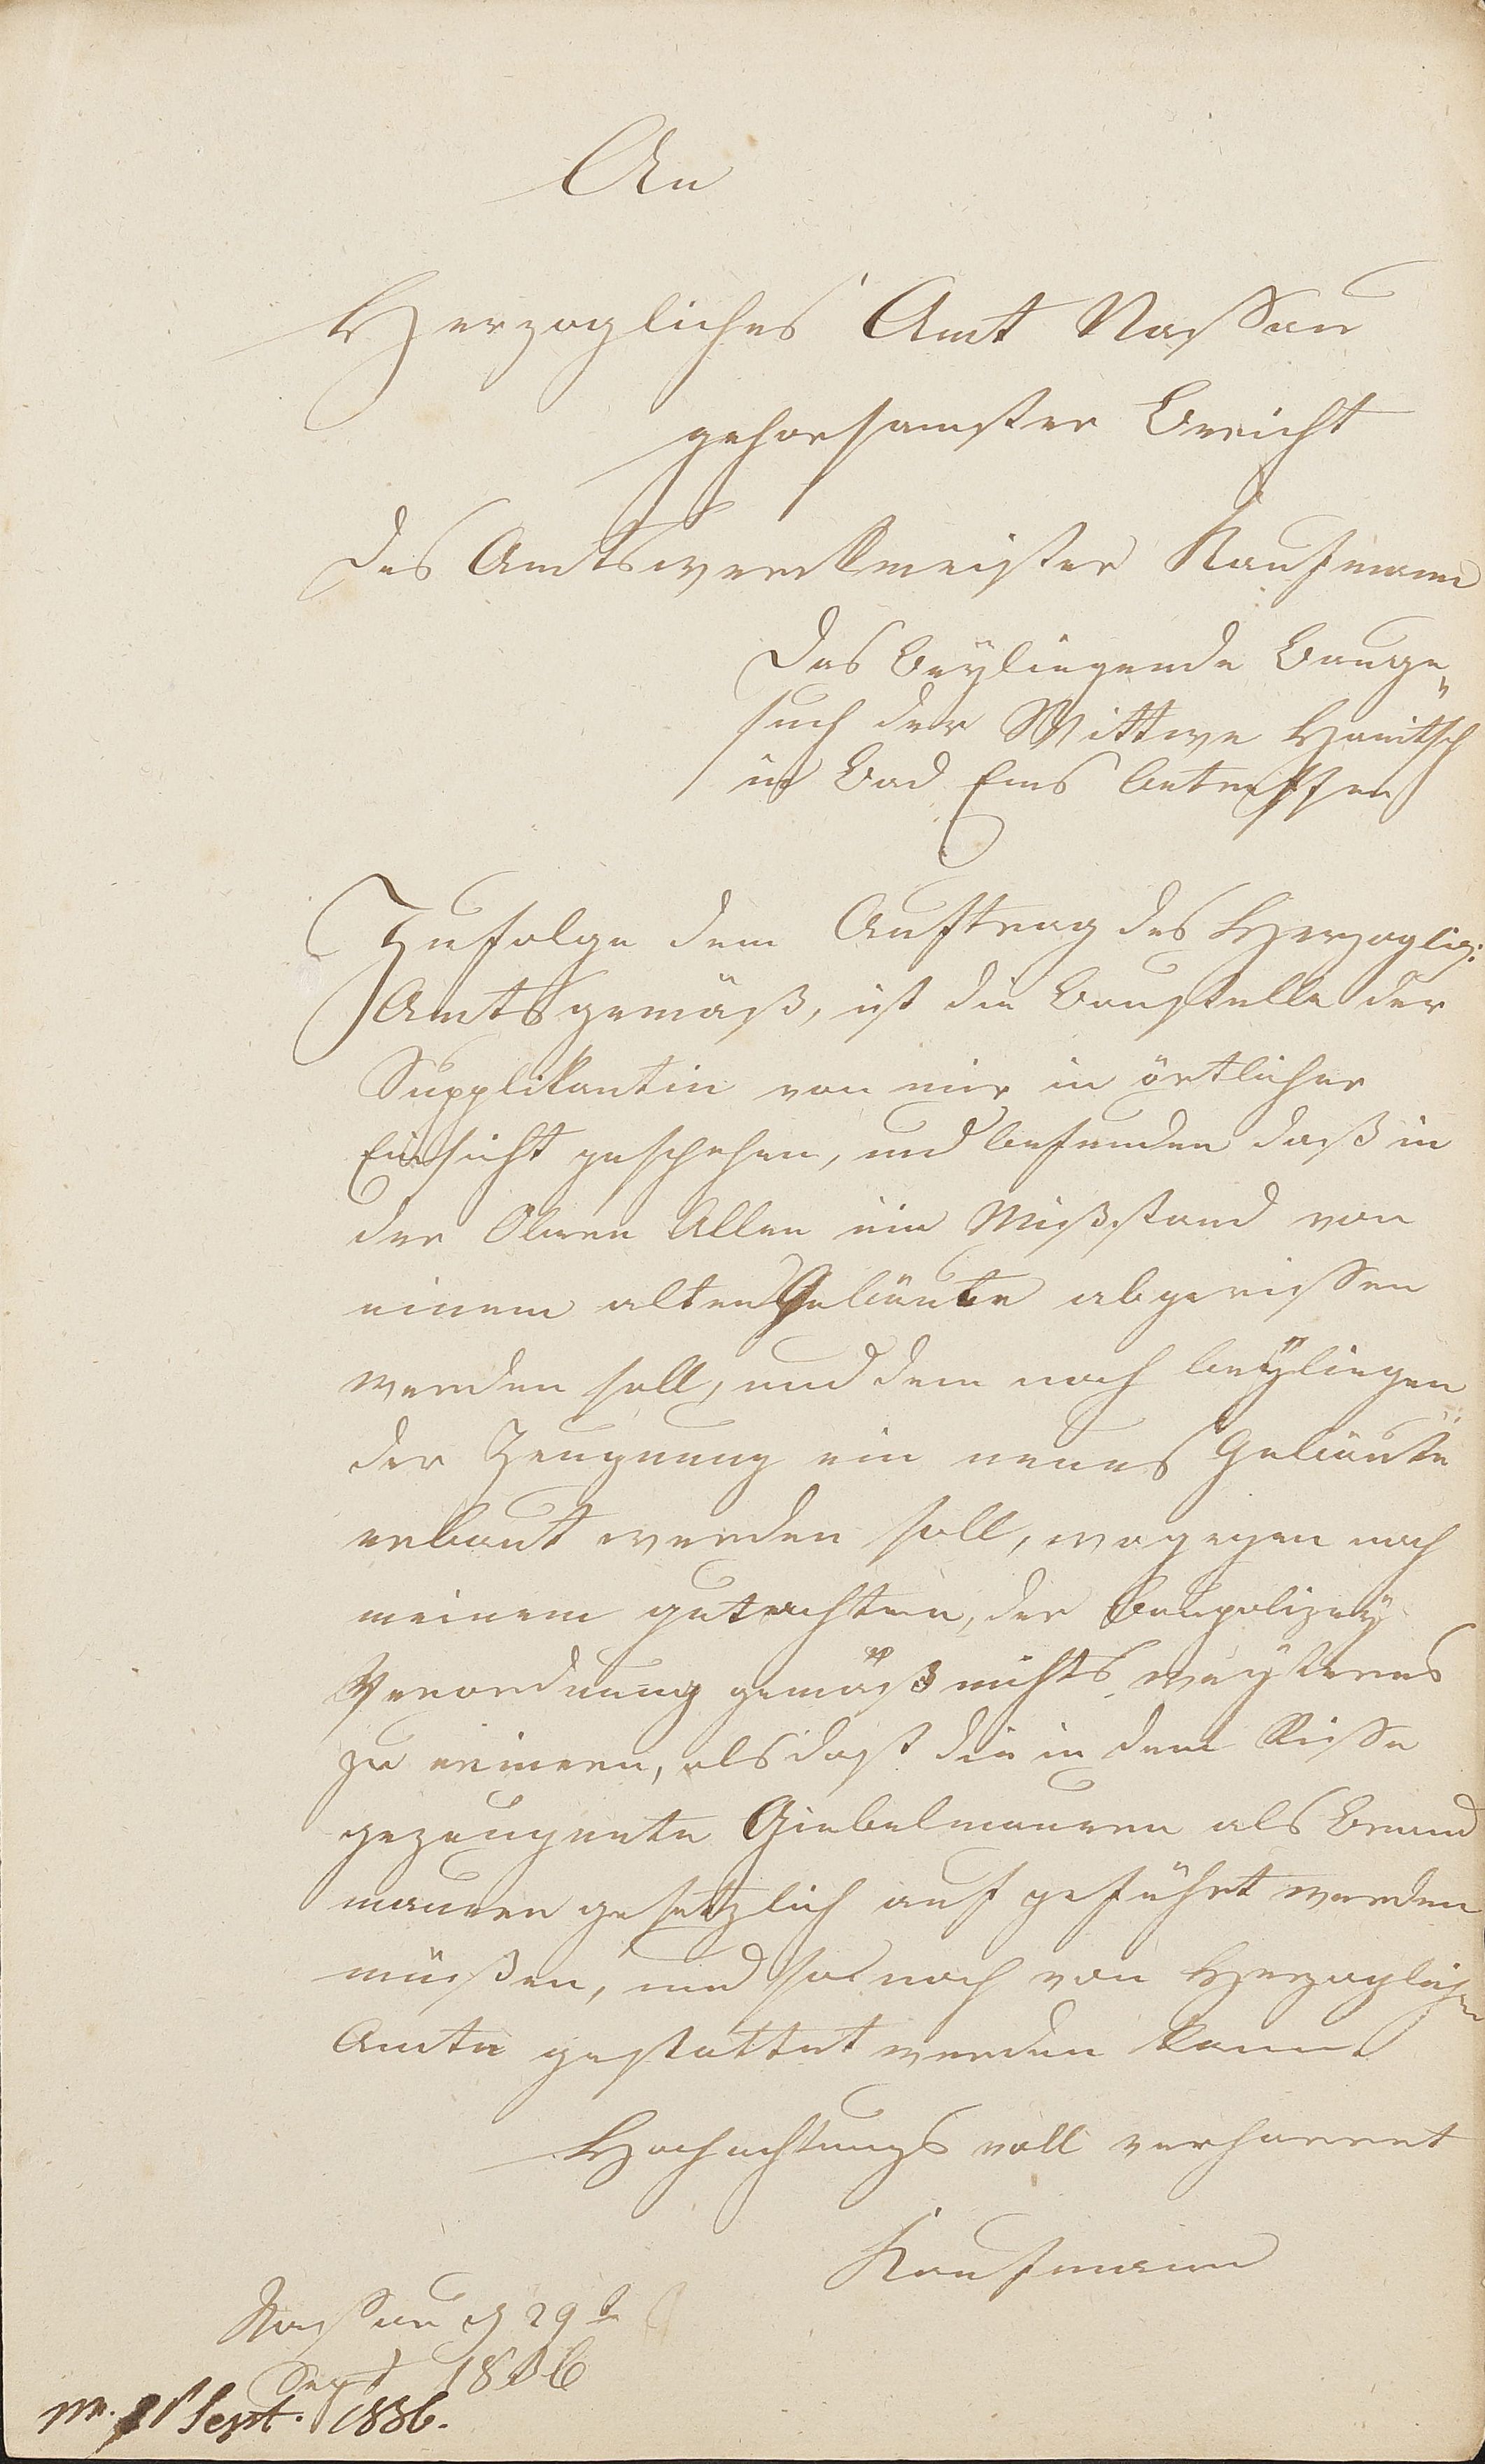 An
Herzogliches Amt Nassau
gehorsamster Bericht
des Amtswerkmeister Kaufmann
Das beyliegende Bauge„
such der Wittwe Hanitsch
in Bad Ems betreffen
Zufolge dem Auftrag des Herzoglig:
Amts gemäß, ist die Baustelle der
Supplikantin von mir in örtlicher
Einsicht geschehen, und befunden daß in
der Obern Allen ein Mißstand von
einem alten Gebäute abgerissen
werden soll, und dem nach beÿliegen
der Zeugnung ein neues Gebäute
erbaut werden soll, wogegen nach
meinem gutachten, der Baupolizeÿ
Verordnung gemäß nichts weiteres
zu erinern, als daß die in dem Risse
gezeugnete Giebelmauren als Brand
mauren gesetzlich auf geführt werden
müßen, und so nach von Herzoglichen
Amte gestattet werden kann
Hochachtungs voll verharret
Kaufmann
Nassau d 29t
Sept 1836
Sept. 1836.